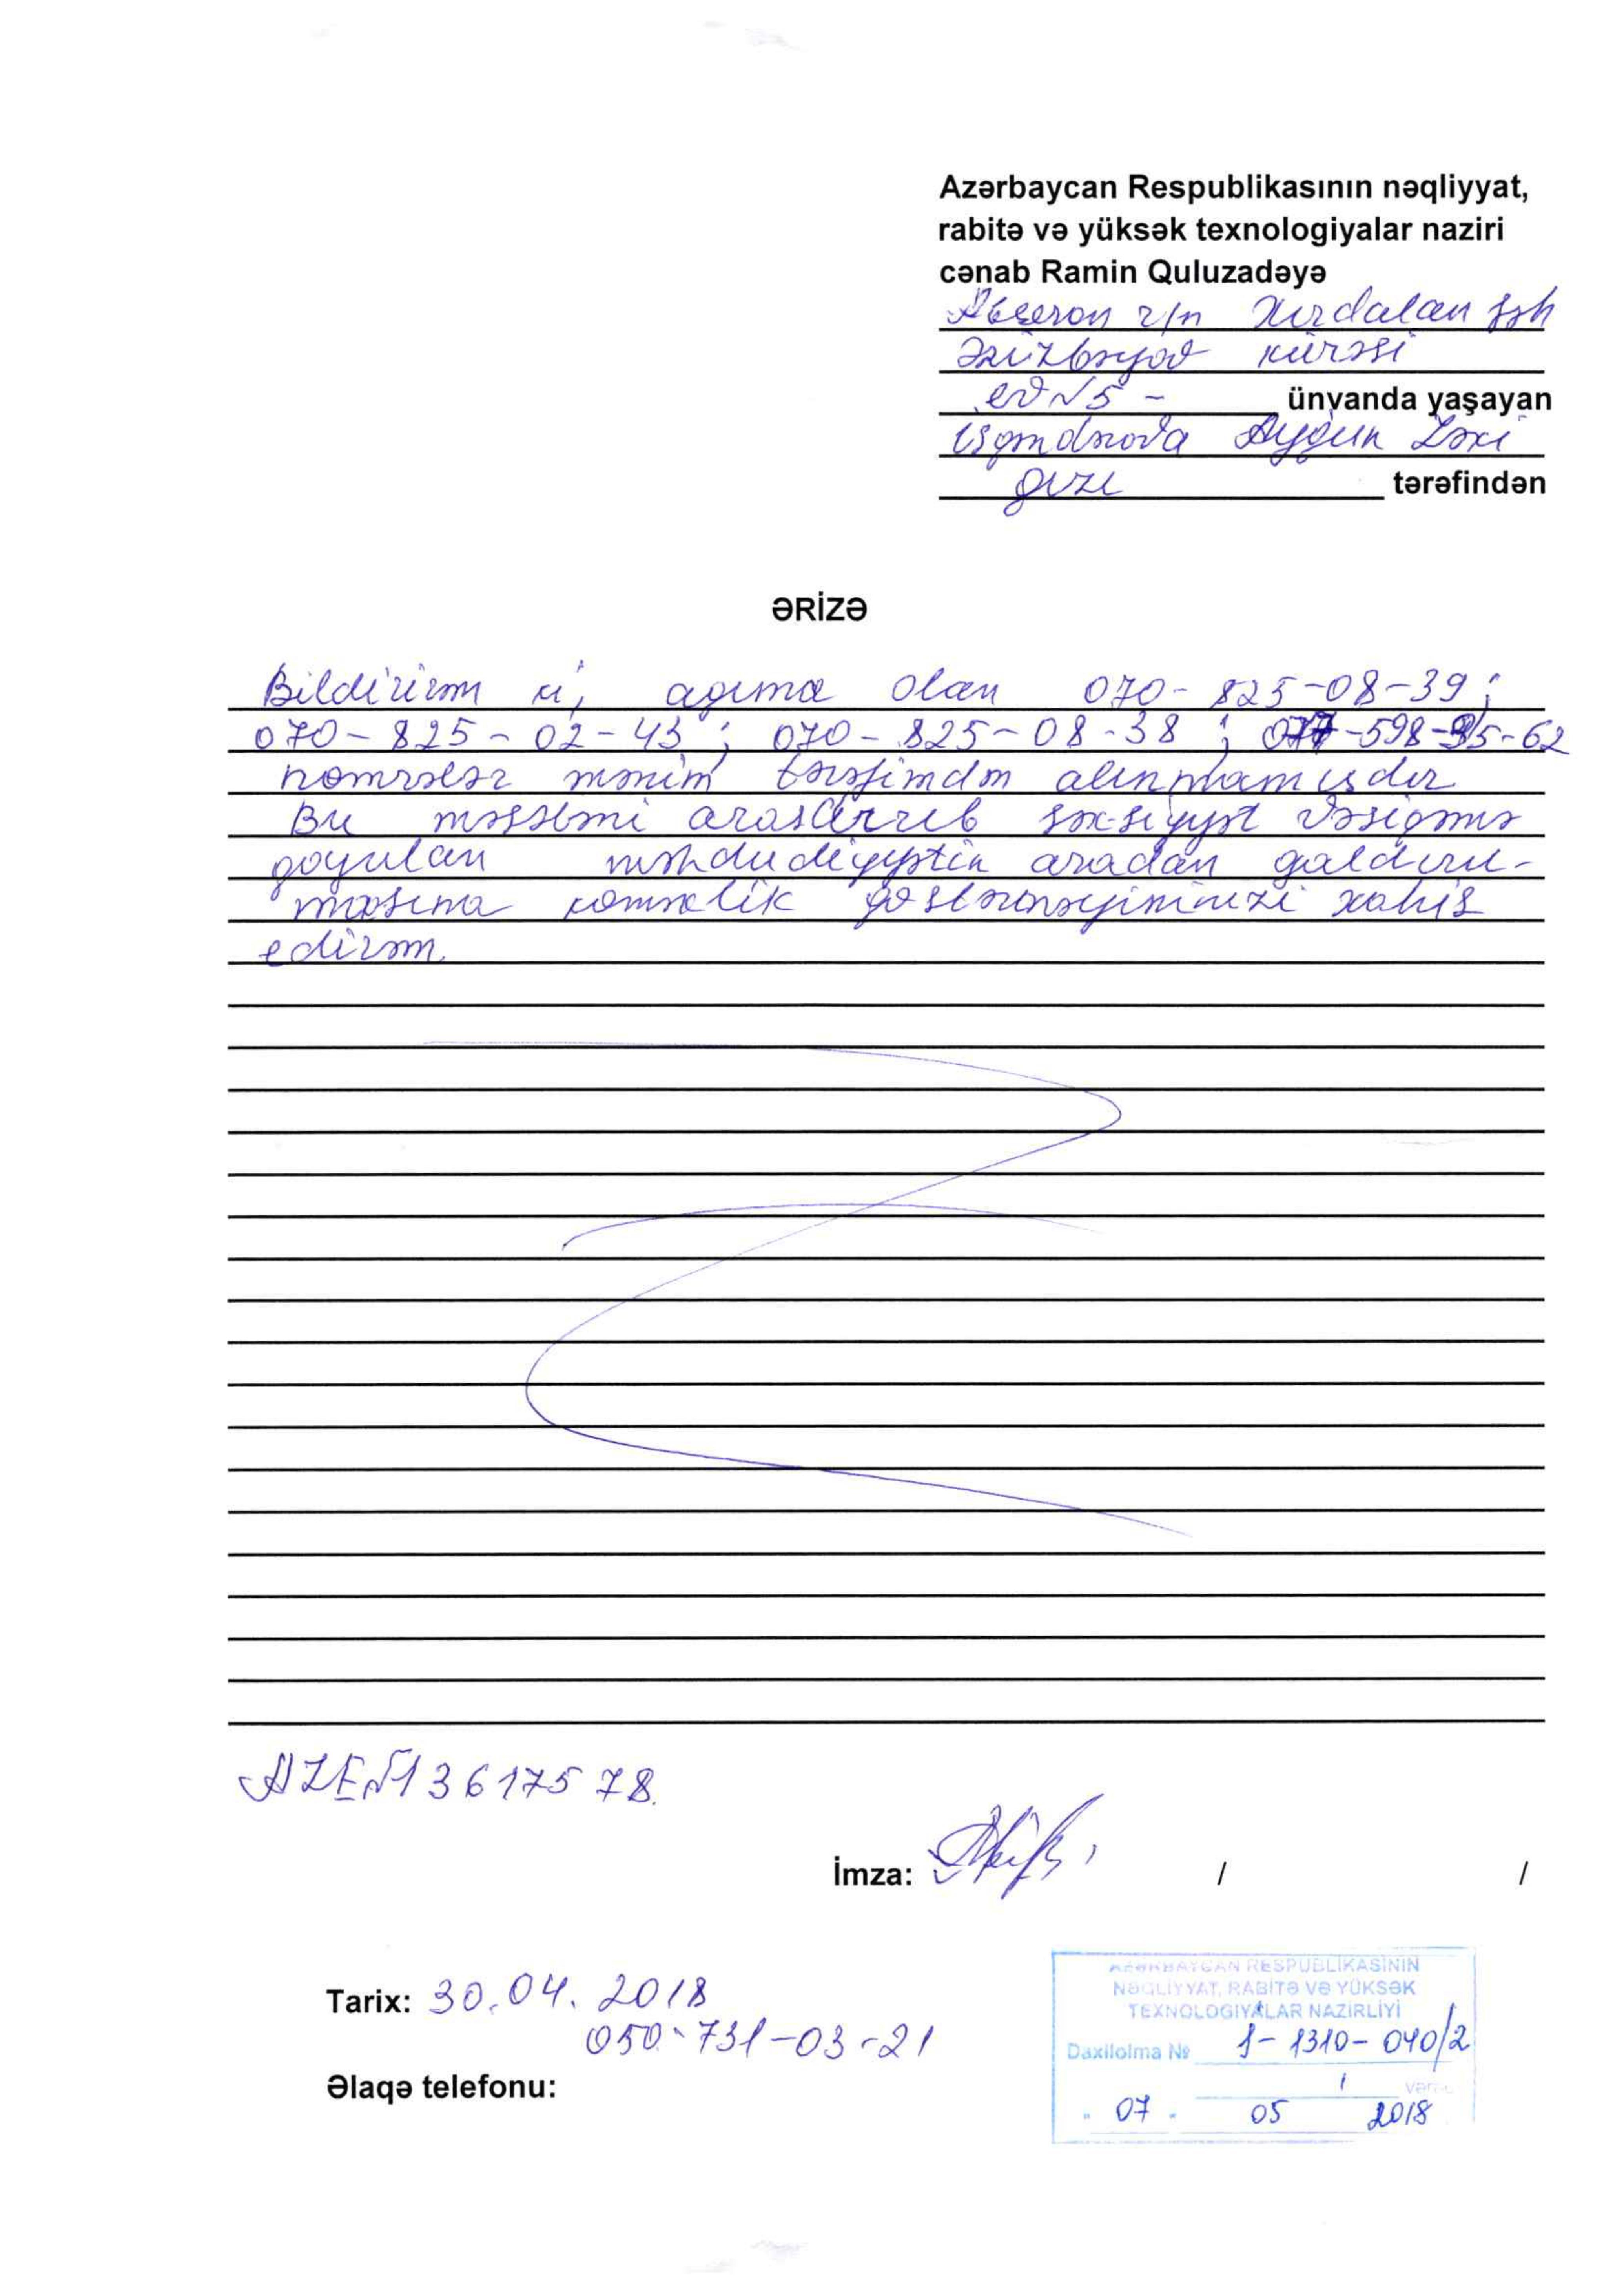 Azərbaycan Respublikasının nəqliyyat,
rabitə və yüksək texnologiyalar naziri
cənab Ramin Quluzadəyə
Abşeron r/n Xırdalan şəh
Əzizbəyov kürəsi
ev N 5 - ünvanda yaşayan
İsgəndərova Aygün Zəki
qızı tərəfindən
ƏRİZƏ
Bildirirəm ki, adıma olan 070-825-08-39;
070-825-02-43; 070-825-08-38; 077-598-95-62
nömrələr mənim tərəfimdən alınmamışdır
Bu məsələni arasdırıb şəxsiyyət vəsiqəmə
qoyulan məhdudiyyətin aradan qaldırıl-
masına köməklik göstərənəyininizi xahiş
edirəm.
AZE N 13617578.
İmza: / /
Tarix: 30.04.2018
050-731-03-21
Əlaqə telefonu:
AZƏRBAYCAN RESPUBLİKASININ
NƏQLİYYAT, RABİTƏ VƏ YÜKSƏK
TEXNOLOGİYALAR NAZİRLİYİ
Daxilolma № Ş-1310-040/2
1 vərəq
" 07 " 05 2018